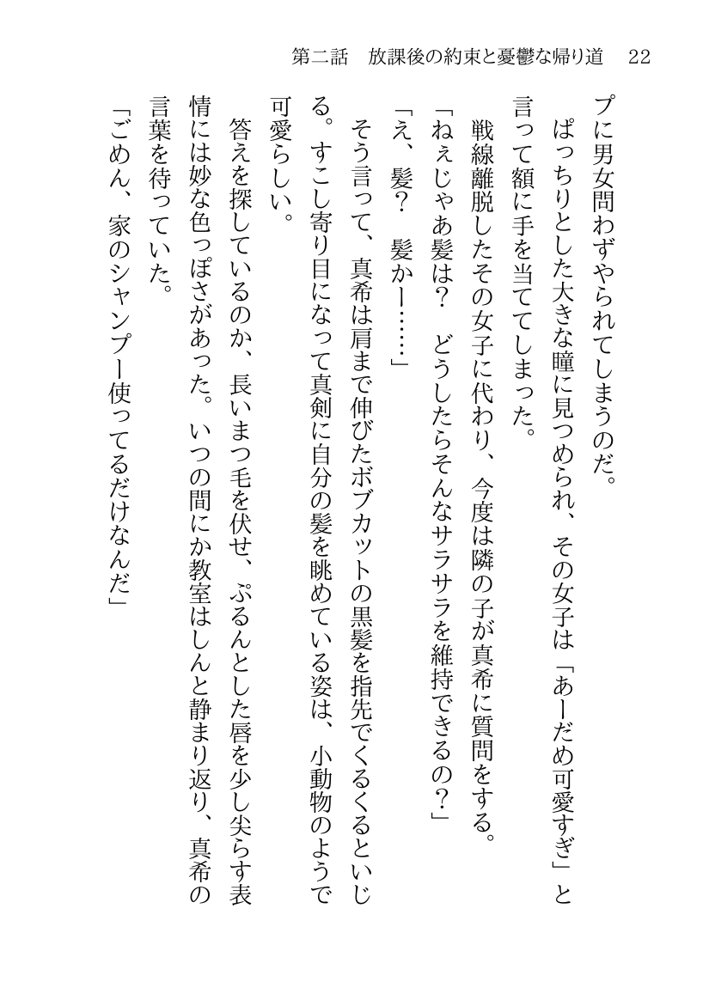 第二話　放課後の約束と憂鬱な帰り道　22
プに男女問わずやられてしまうのだ。
　ぱっちりとした大きな瞳に見つめられ、その女子は「あーだめ可愛すぎ」と
言って額に手を当ててしまった。
　戦線離脱したその女子に代わり、今度は隣の子が真希に質問をする。
「ねぇじゃあ髪は？　どうしたらそんなサラサラを維持できるの？」
「え、髪？　髪かー……」
　そう言って、真希は肩まで伸びたボブカットの黒髪を指先でくるくるといじ
る。すこし寄り目になって真剣に自分の髪を眺めている姿は、小動物のようで
可愛らしい。
　答えを探しているのか、長いまつ毛を伏せ、ぷるんとした唇を少し尖らす表
情には妙な色っぽさがあった。いつの間にか教室はしんと静まり返り、真希の
言葉を待っていた。
「ごめん、家のシャンプー使ってるだけなんだ」